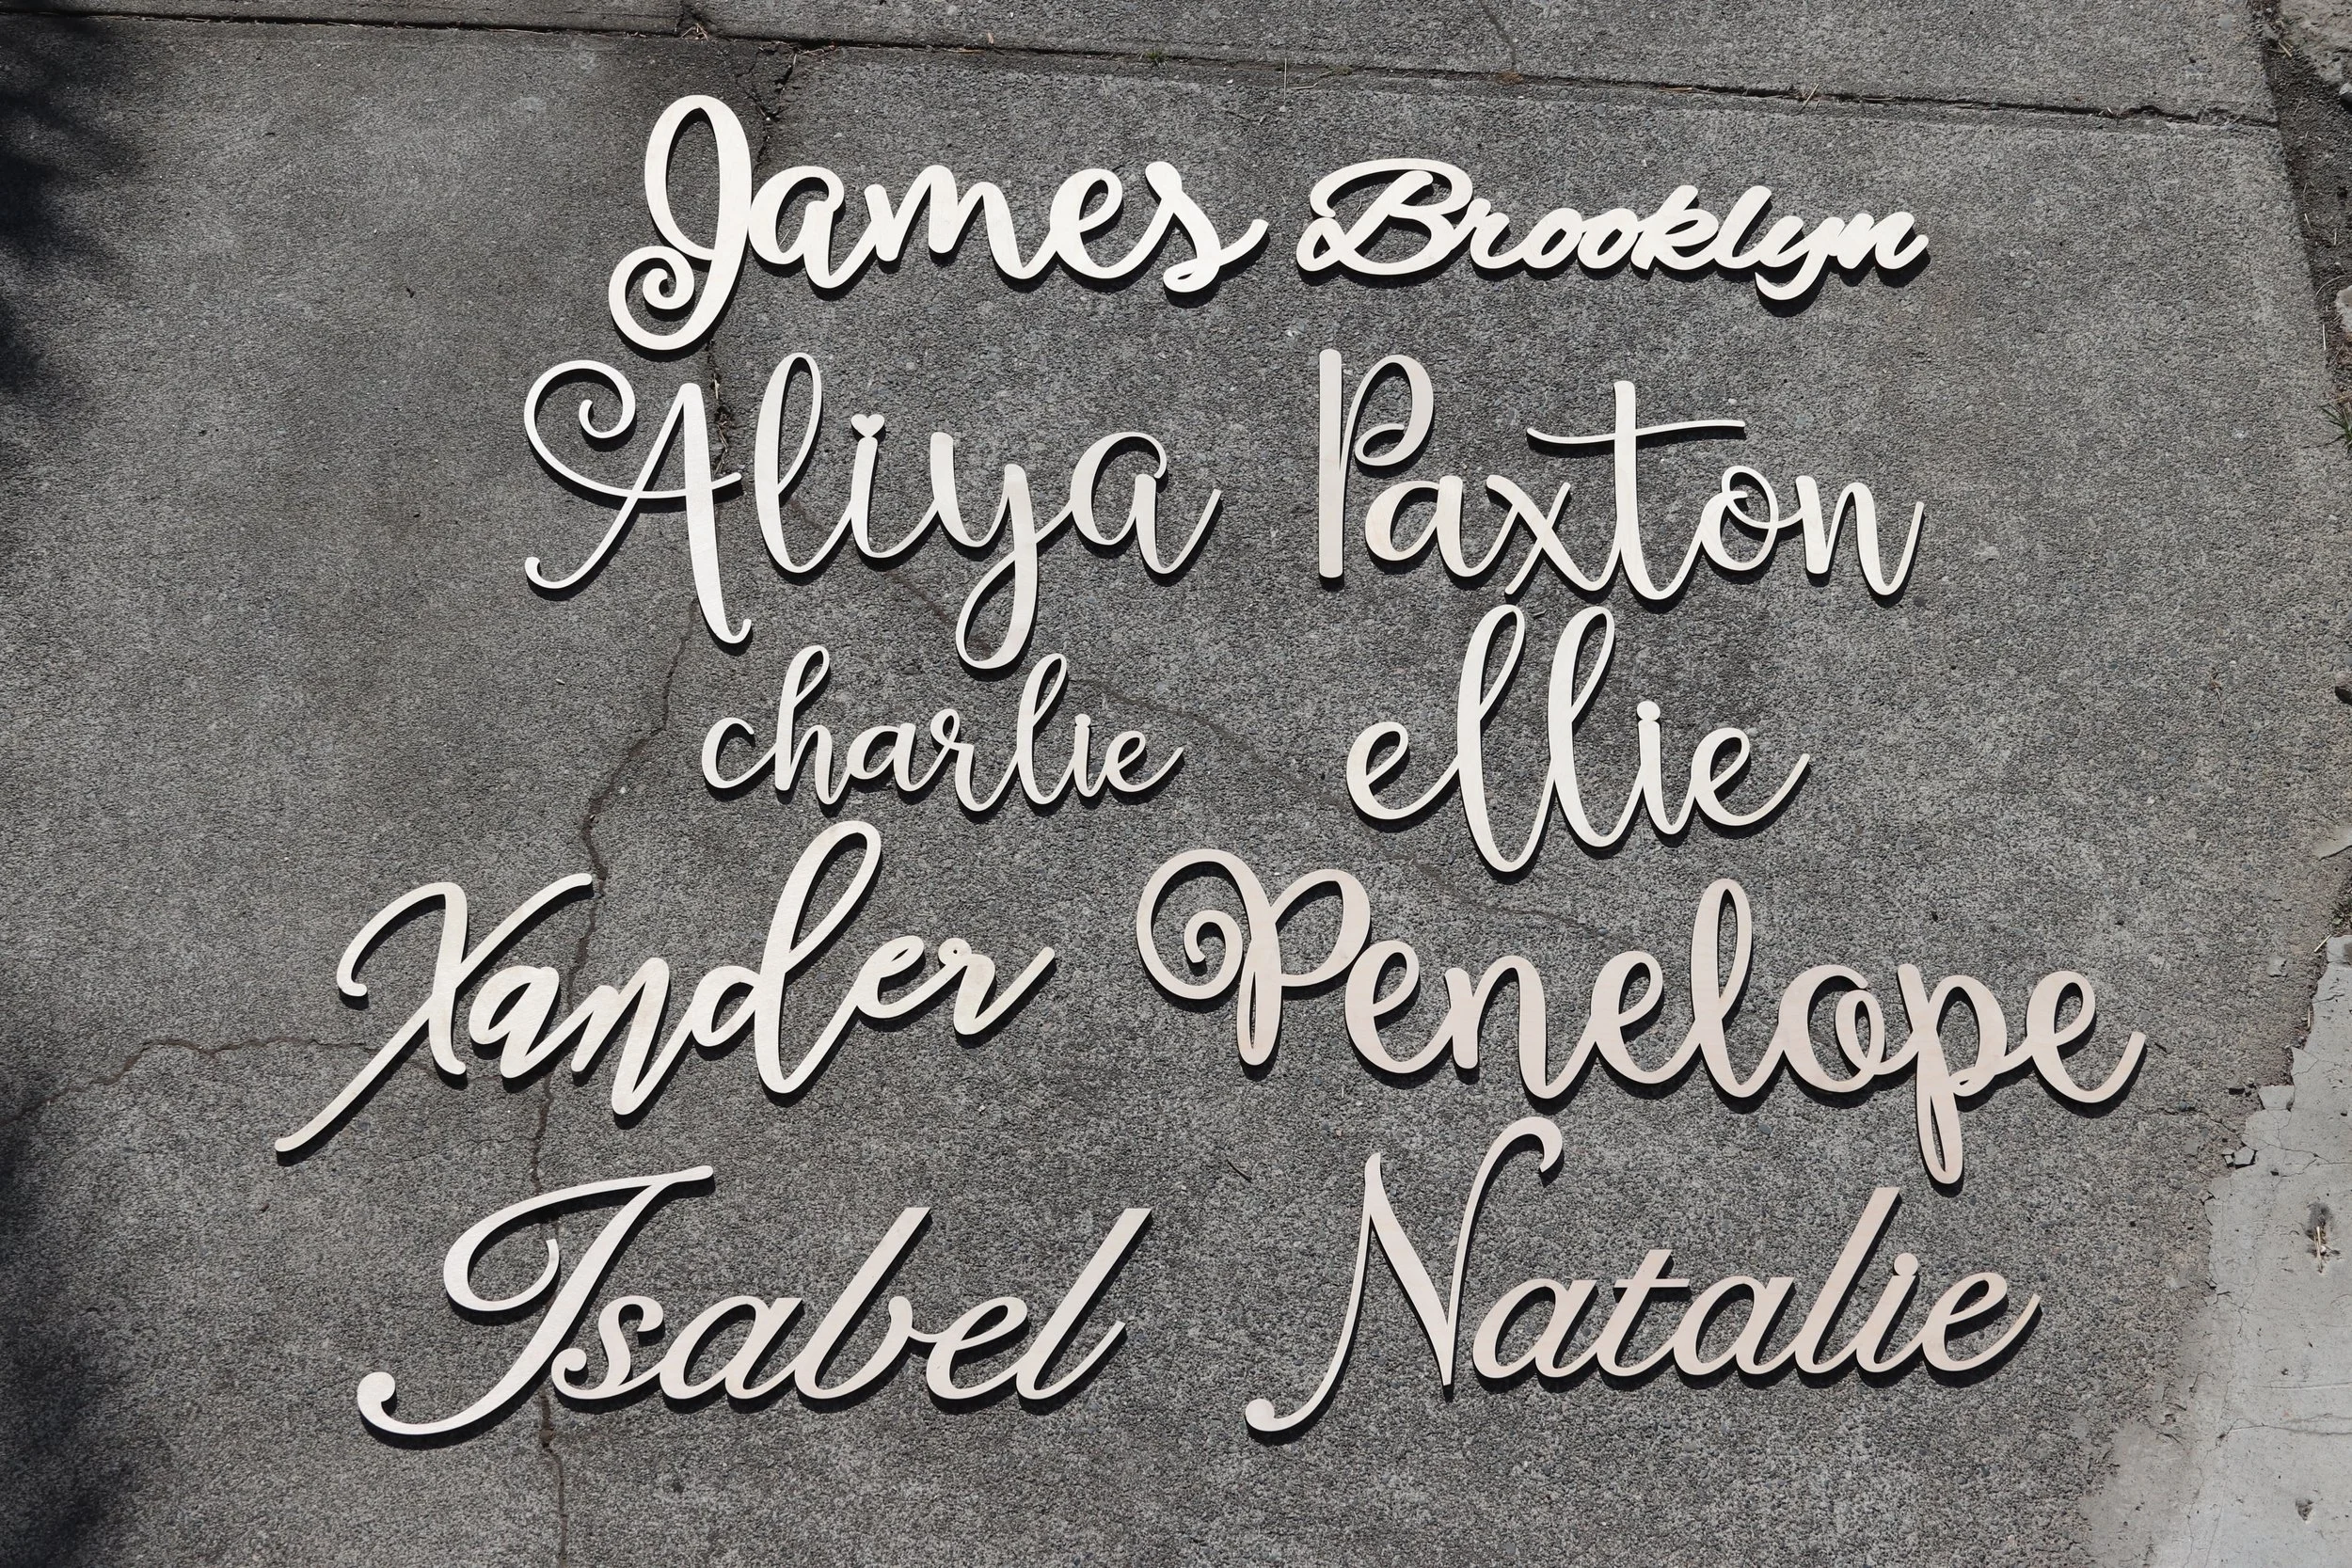 James Brooklyn
Aliya Paxton
charlie ellie
Xander Penelope
Isabel Natalie